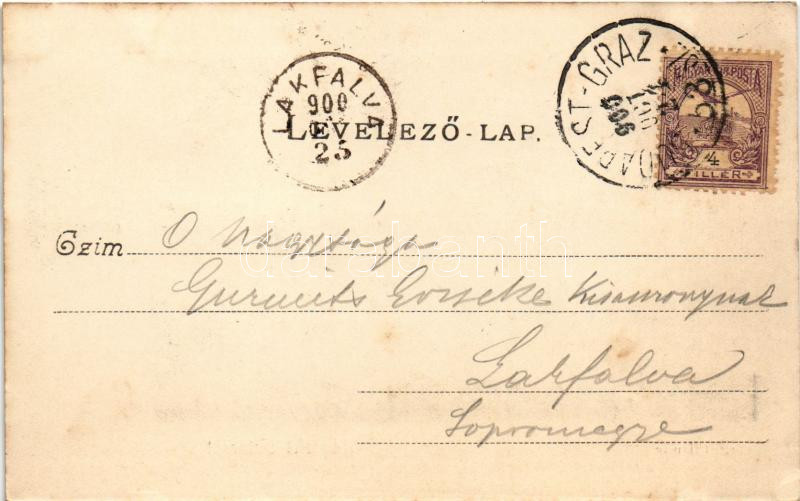 LAKFALVA
900
25
BUDAPEST-GRAZ
900
53
MAGYAR KIR. POSTA
4
FILLÉR
LEVELEZŐ-LAP.
Czim O nagysága
Kisasszonynak
Lakfalva
Sopronmegye
darabanth